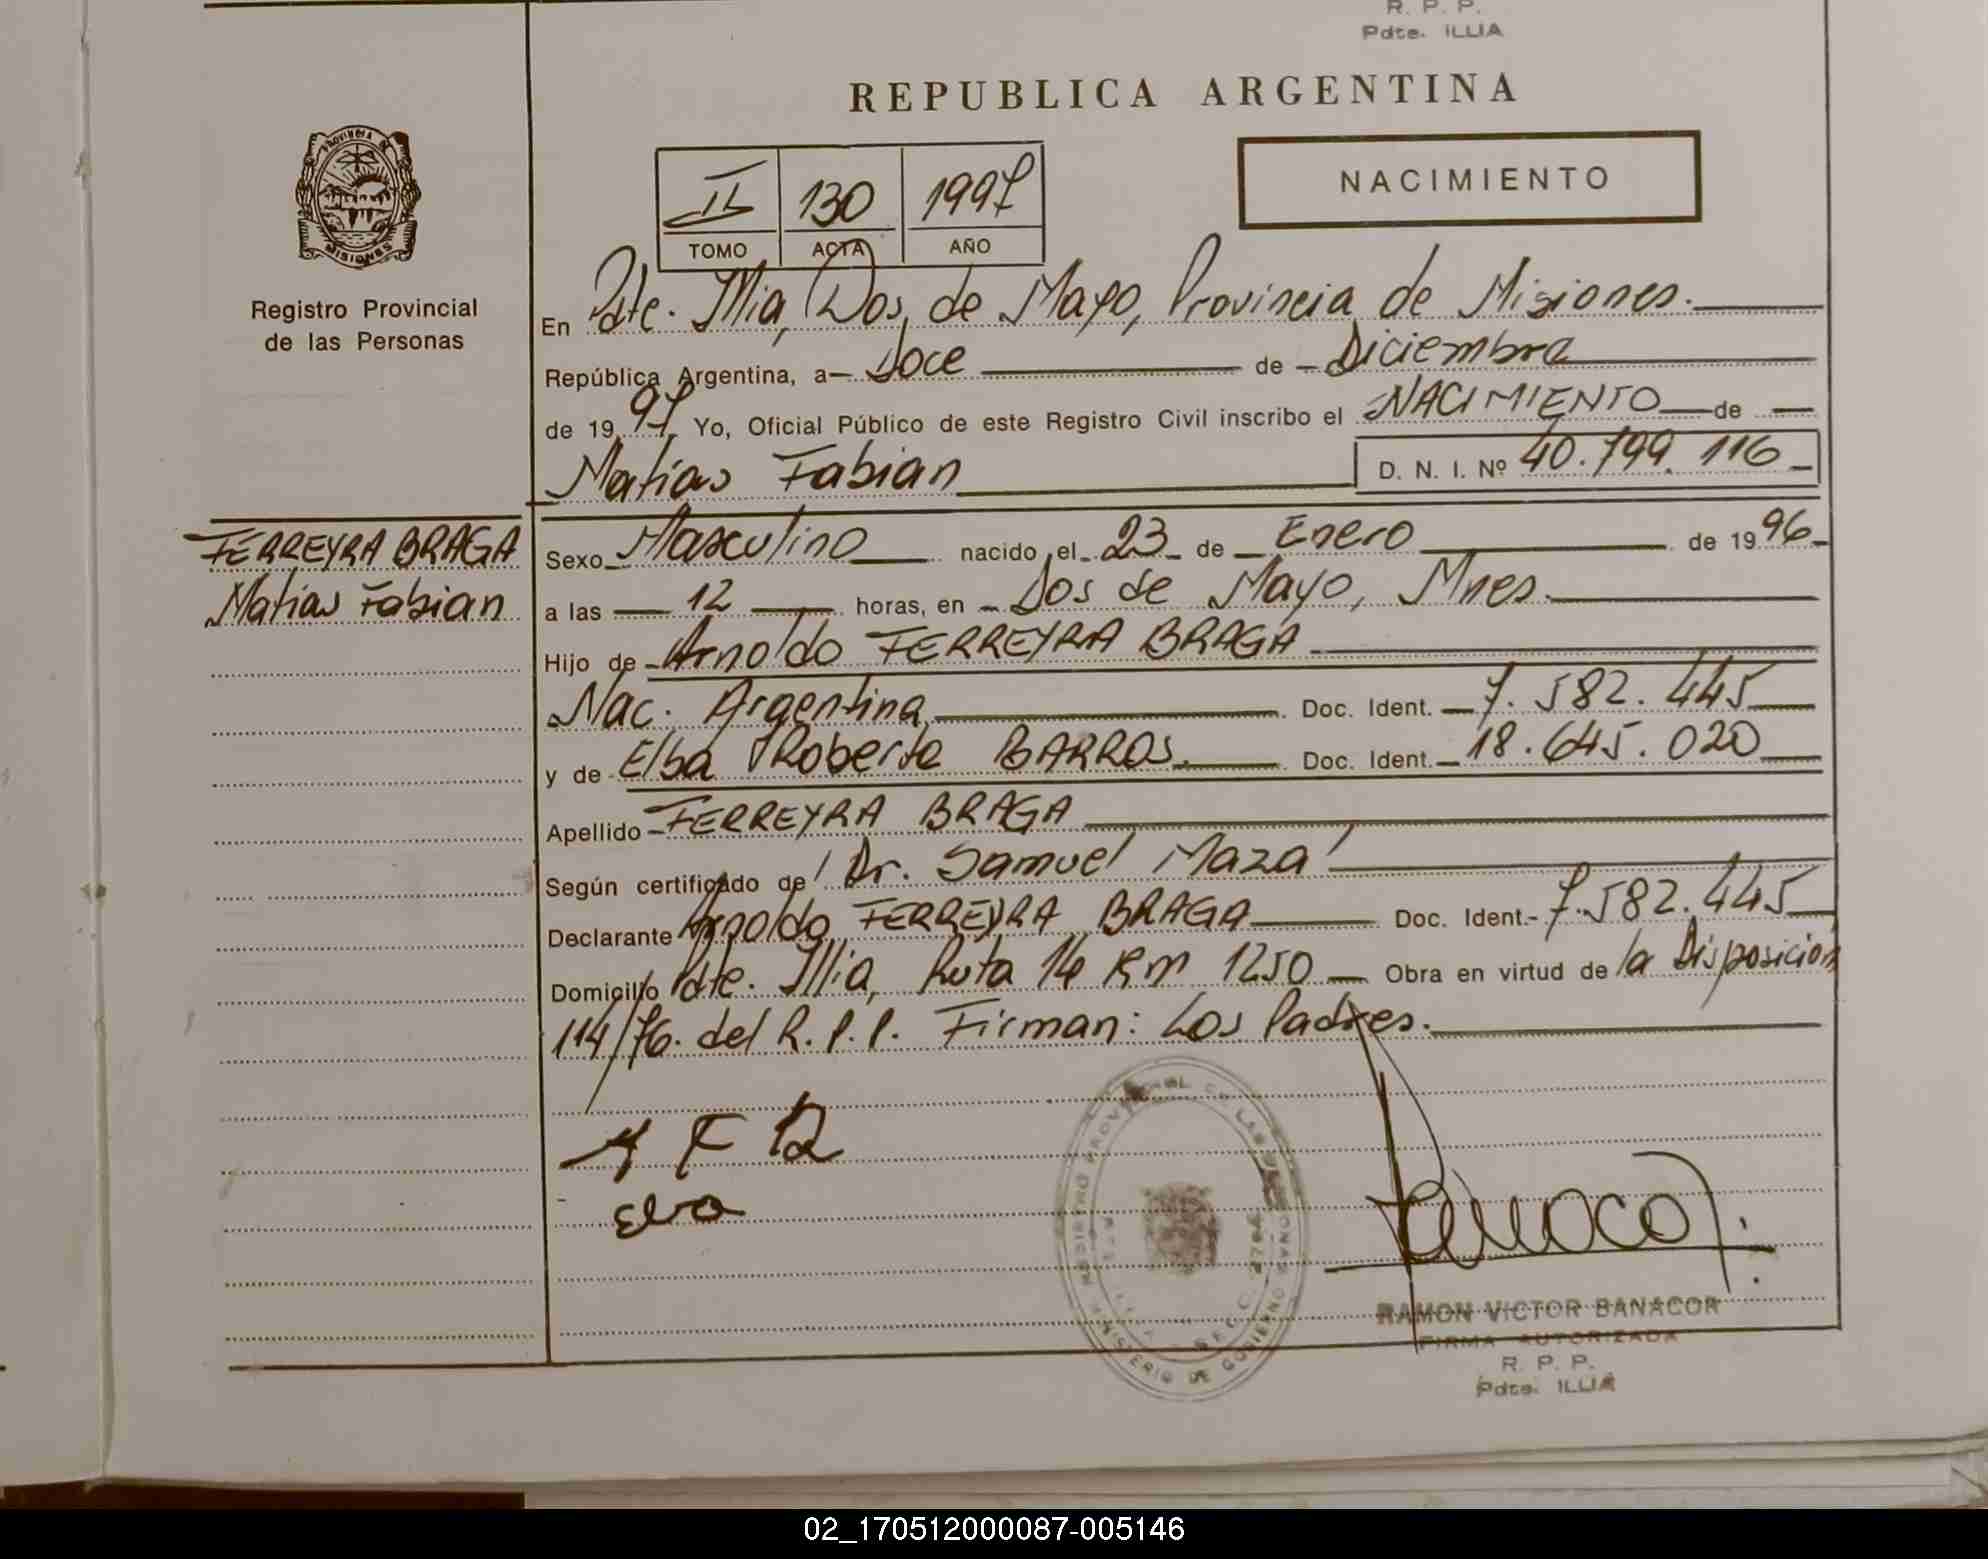 R. P. P.
Pdte. ILLIA
REPUBLICA ARGENTINA
PROVINCIA DE
MISIONES
Registro Provincial
de las Personas
II 130 1997
TOMO ACTA AÑO
NACIMIENTO
En Pdte. Illia, Dos de Mayo, Provincia de Misiones.
República Argentina, a Doce de Diciembre
de 1997 Yo, Oficial Público de este Registro Civil inscribo el NACIMIENTO de
Matias Fabian D. N. I. Nº 40.799.116
FERREYRA BRAGA
Matias Fabian
Sexo Masculino nacido el 23 de Enero de 1996
a las 12 horas, en Dos de Mayo, Mnes.
Hijo de Arnoldo FERREYRA BRAGA
Nac. Argentina, Doc. Ident. 7.582.445
y de Elba Roberta BARROS. Doc. Ident. 18.645.020
Apellido FERREYRA BRAGA
Según certificado de Dr. Samuel Maza
Declarante Arnoldo FERREYRA BRAGA Doc. Ident. 7.582.445
Domicilio Pdte. Illia, Ruta 14 Km 1250 Obra en virtud de la Disposición
114/76. del R.P.P. Firman: Los Padres.
A F B
Elva
RAMON VICTOR BANACOR
FIRMA AUTORIZADA
R. P. P.
Pdte. ILLIA
02_170512000087-005146